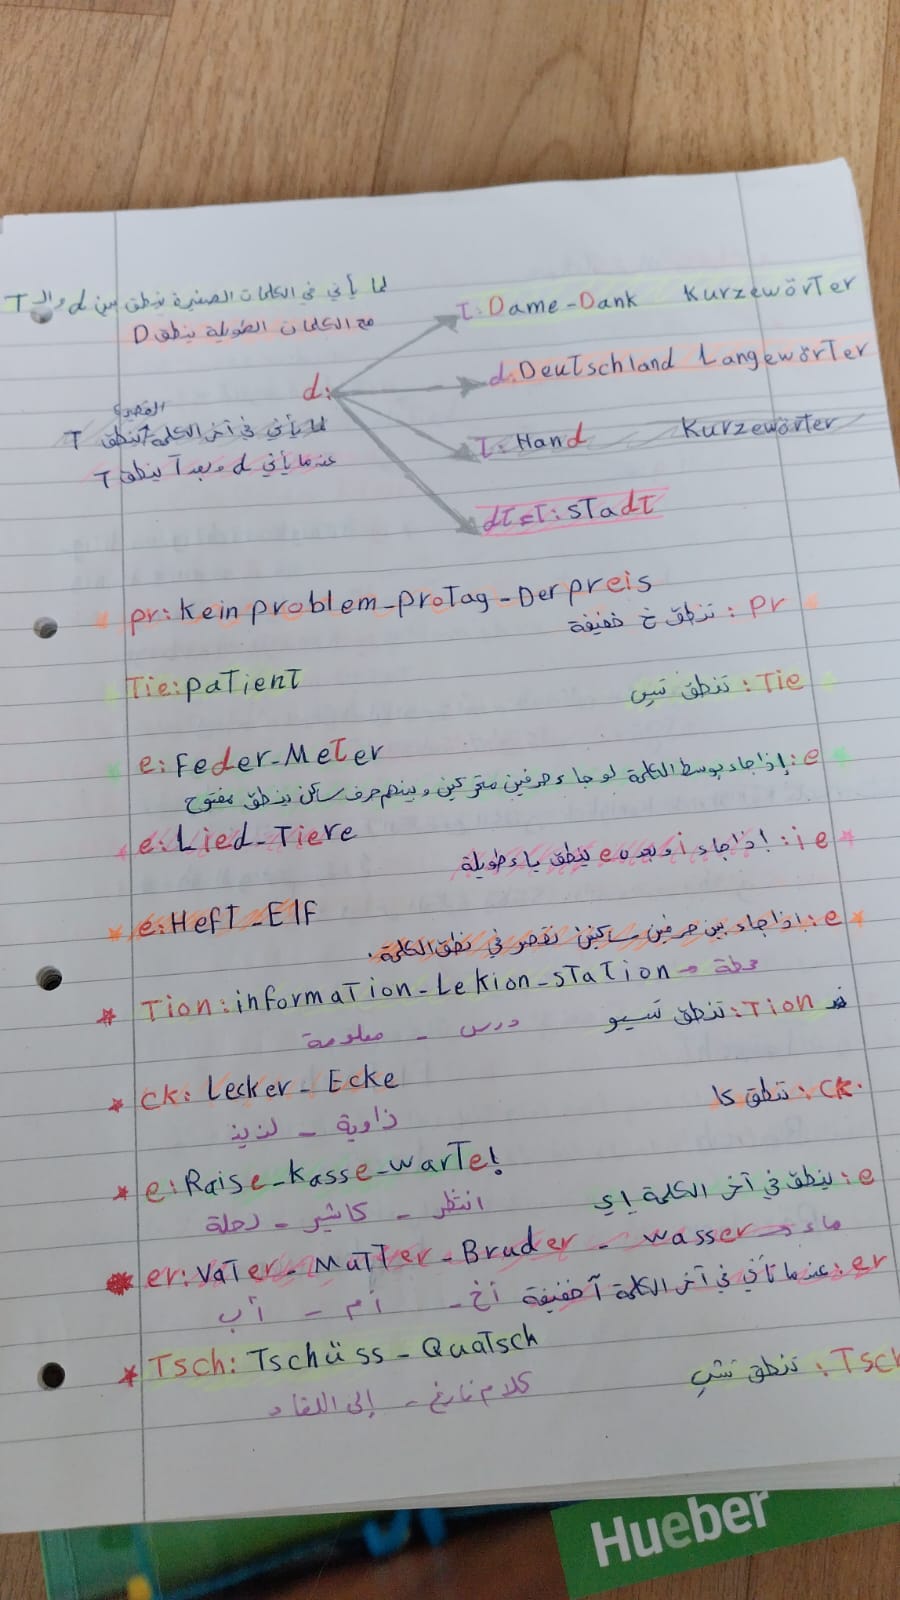 لما يأتي في الكلمات الصغيرة ينطق بين d والـ T
مع الكلمات الطويلة ينطق D
T: Dame-Dank Kurzewörter
d: Deutschland Langewörter
d:
القصيرة
لما يأتي في آخر الكلمة ينطق T
عندما يأتي d وبعد T ينطق T
T: Hand Kurzewörter
dT=T: STadT
pr: Kein problem-proTag-Der preis
pr: تنطق خ خفيفة
Tie: paTienT
Tie: تنطق تسي
e: Feder-MeTer
e: إذا جاء بوسط الكلمة لو جاء حرفين متحركين وبينهم حرف ساكن ينطق مفتوح
e: Lied-Tiere
ie: إذا جاء i وبعده e ينطق ياء طويلة
e: HefT-Elf
e: إذا جاء بين حرفين ساكنين نقصر في نطق الكلمة.
Tion: informaTion-Lekion-sTaTion → محطة
Tion: تنطق تسيو
درس - معلومة
ck: Lecker-Ecke
ck: تنطق كا
زاوية - لذيذ
e: Raise-Kasse-warTe!
e: ينطق في آخر الكلمة إي
انتظر - كاشير - رحلة
er: VaTer-MuTTer-Bruder-wasser → ماء
er: عندما تأتي في آخر الكلمة آ خفيفة
أخ - أم - أب
Tsch: Tschüss-QuaTsch
Tsch: تنطق تش
كلام فارغ - إلى اللقاء
Hueber